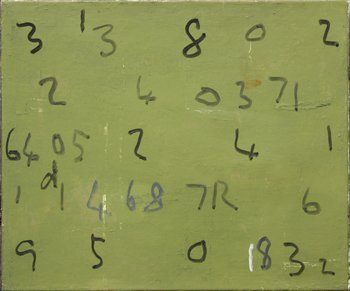 3 1 3 8 0 2
2 4 0 3 7 1
6 4 0 5 2 4 1
1 d 1 4 6 8 7 R 6
9 5 0 1 8 3 2